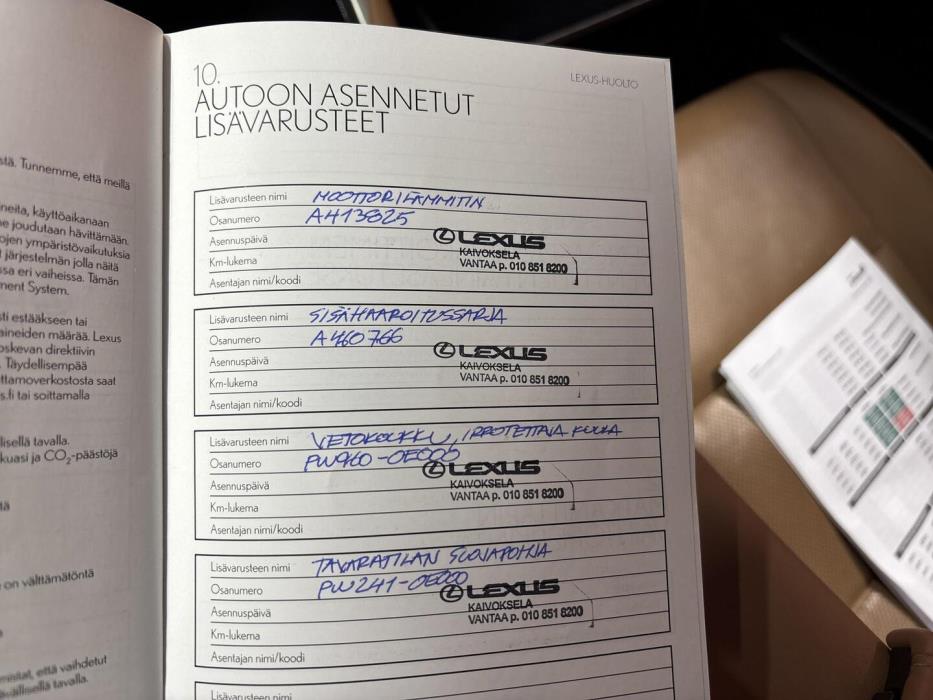 stä. Tunnemme, että meillä
neita, käyttöaikanaan
ne joudutaan hävittämään.
ojen ympäristövaikutuksia
järjestelmän jolla näitä
ssa eri vaiheissa. Tämän
ment System.
sti estääkseen tai
aineiden määrää. Lexus
oskevan direktiivin
Täydellisempää
ttamoverkostosta saat
s.fi tai soittamalla
llisellä tavalla.
kuasi ja CO₂-päästöjä
tä
on välttämätöntä
mistat, että vaihdetut
tavalla.
LEXUS-HUOLTO
10.
AUTOON ASENNETUT
LISÄVARUSTEET
Lisävarusteen nimi MOOTTORILÄMMITIN
Osanumero A413825
Asennuspäivä LEXUS
KAIVOKSELA
Km-lukema VANTAA p. 010 851 8200
Asentajan nimi/koodi
Lisävarusteen nimi SISÄHAAROITUSSARJA
Osanumero A460766
Asennuspäivä LEXUS
KAIVOKSELA
Km-lukema VANTAA p. 010 851 8200
Asentajan nimi/koodi
Lisävarusteen nimi VETOKOUKKU, IRROTETTAVA KUULA
Osanumero PW960-0E000
LEXUS
Asennuspäivä KAIVOKSELA
VANTAA p. 010 851 8200
Km-lukema
Asentajan nimi/koodi
Lisävarusteen nimi TAVARATILAN SUOJAPOHJA
Osanumero PW241-0E000
LEXUS
Asennuspäivä KAIVOKSELA
VANTAA p. 010 851 8200
Km-lukema
Asentajan nimi/koodi
Lisävarusteen nimi